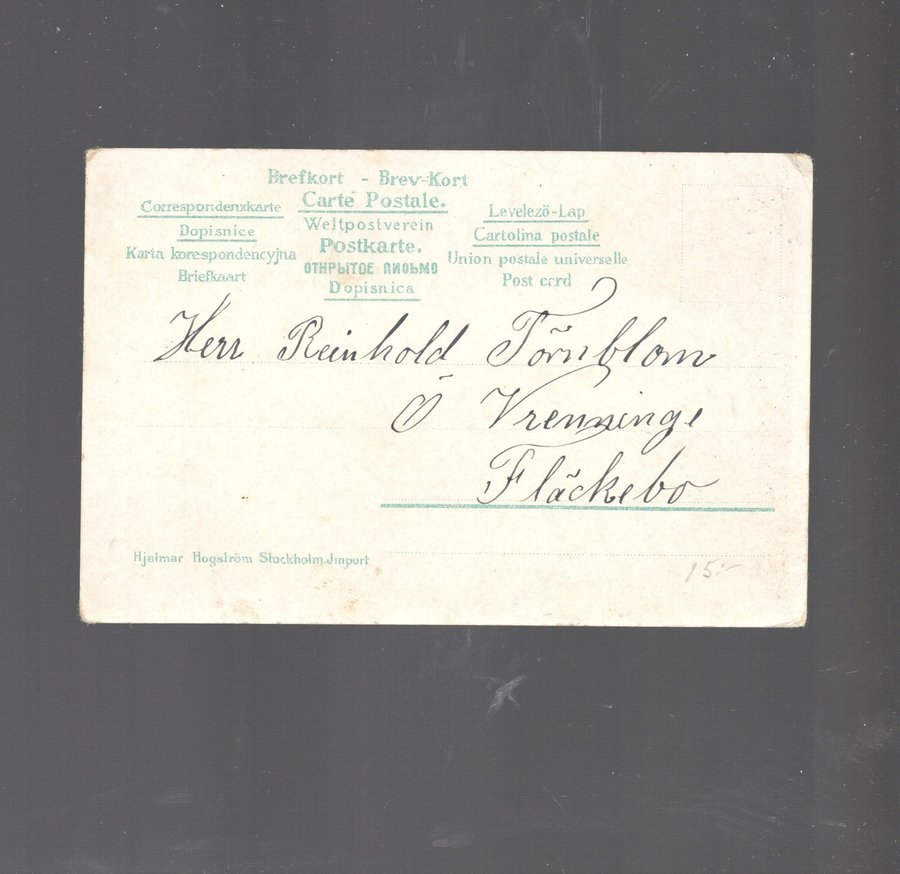 Brefkort - Brev-Kort
Correspondenzkarte
Carte Postale.
Levelezö-Lap
Dopisnice
Weltpostverein
Cartolina postale
Karta korespondencyjna
Postkarte.
Union postale universelle
Briefkaart
ОТКРЫТОЕ ПИСЬМО
Post card
Dopisnica
Herr Reinhold Törnblom
Ö Vrenninge
Fläckebo
Hjalmar Hogström Stockholm. Import
15:-